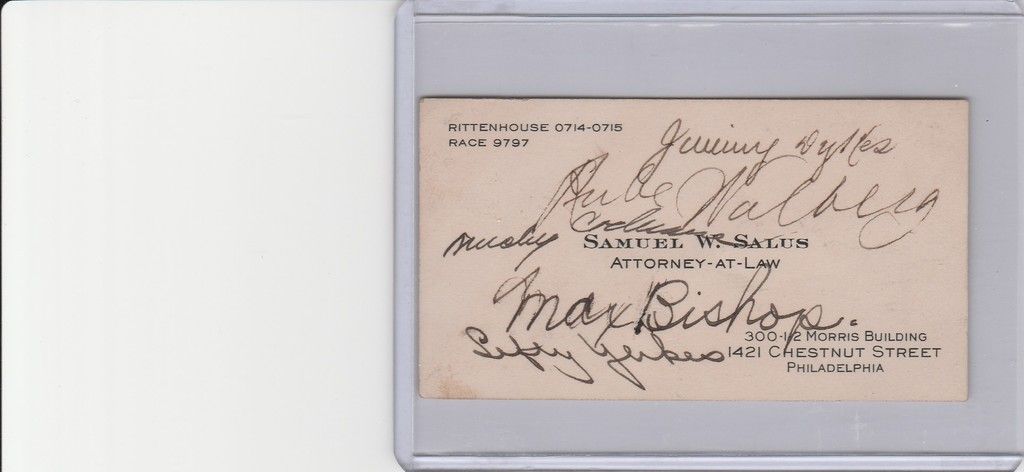 RITTENHOUSE 0714-0715
RACE 9797
Jimmy Dykes
Rube Walberg
Mickey Cochrane
SAMUEL W. SALUS
ATTORNEY-AT-LAW
Max Bishop.
300-1-2 MORRIS BUILDING
Lefty Yerkes
1421 CHESTNUT STREET
PHILADELPHIA